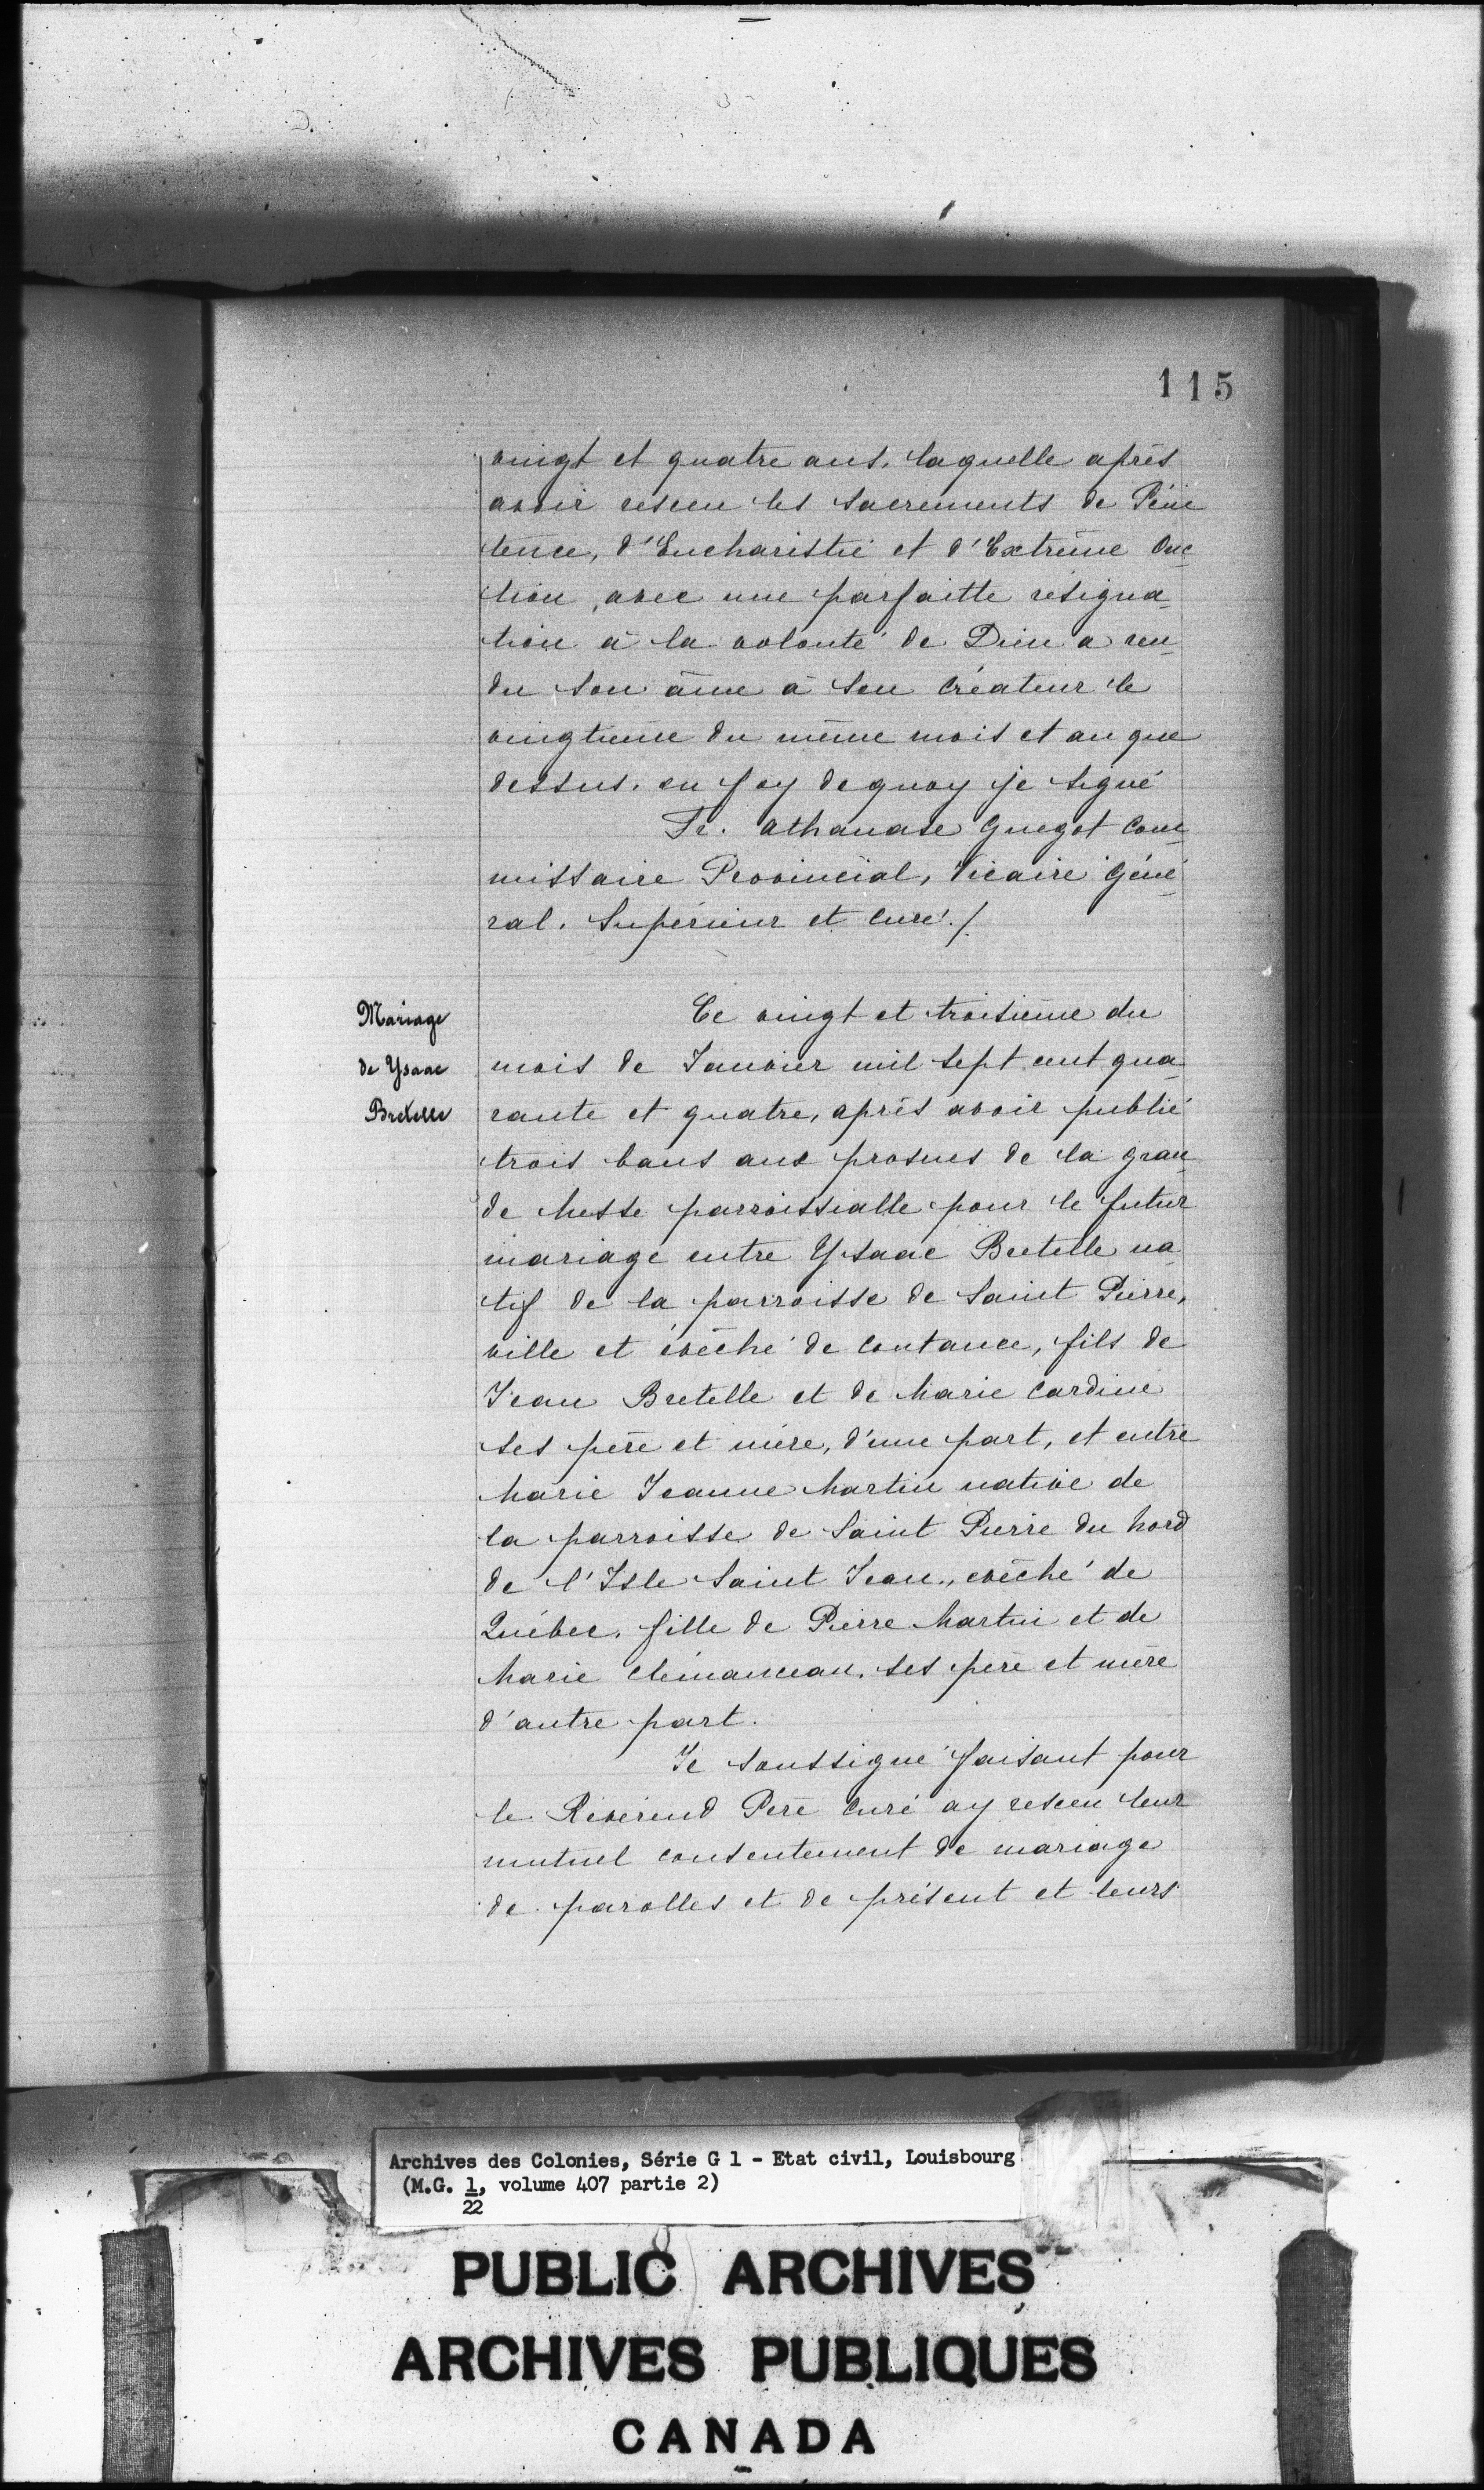 115
vingt et quatre ans. laquelle après
avoir resceu les sacrements de Péni
tence, d'Eucharistie et d'Extrême Onc-
tion, avec une parfaitte resigna-
tion à la volonté de Dieu a ren-
du son âme à son créateur le
vingtième du même mois et an que
dessus. en foy de quoy je signé
Fr. Athanase Guegot Com-
missaire Provincial, Vicaire Géné-
ral. Supérieur et curé./.
Mariage
de Ysaac
Bretelle
Ce vingt et troisième du
mois de Janvier mil sept cent qua-
rante et quatre, après avoir publié
trois bans aux prosnes de la gran-
de Messe parroissialle pour le futur
mariage entre Ysaac Bretelle na-
tif de la parroisse de Saint Pierre,
ville et évêché de Coutance, fils de
Jean Bretelle et de Marie Cardine
ses père et mère, d'une part, et entre
Marie Jeanne Martin native de
la parroisse de Saint Pierre du Nord
de l'Isle Saint Jean, evêché de
Québec. fille de Pierre Martin et de
Marie Clémanceau. ses père et mère
d'autre part.
Je soussigné faisant pour
le Révérend Père Curé ay resceu leur
mutuel consentement de mariage
de parolles et de présent et leurs
Archives des Colonies, Série G 1 - Etat civil, Louisbourg
(M.G. 1, volume 407 partie 2)
22
PUBLIC ARCHIVES
ARCHIVES PUBLIQUES
CANADA